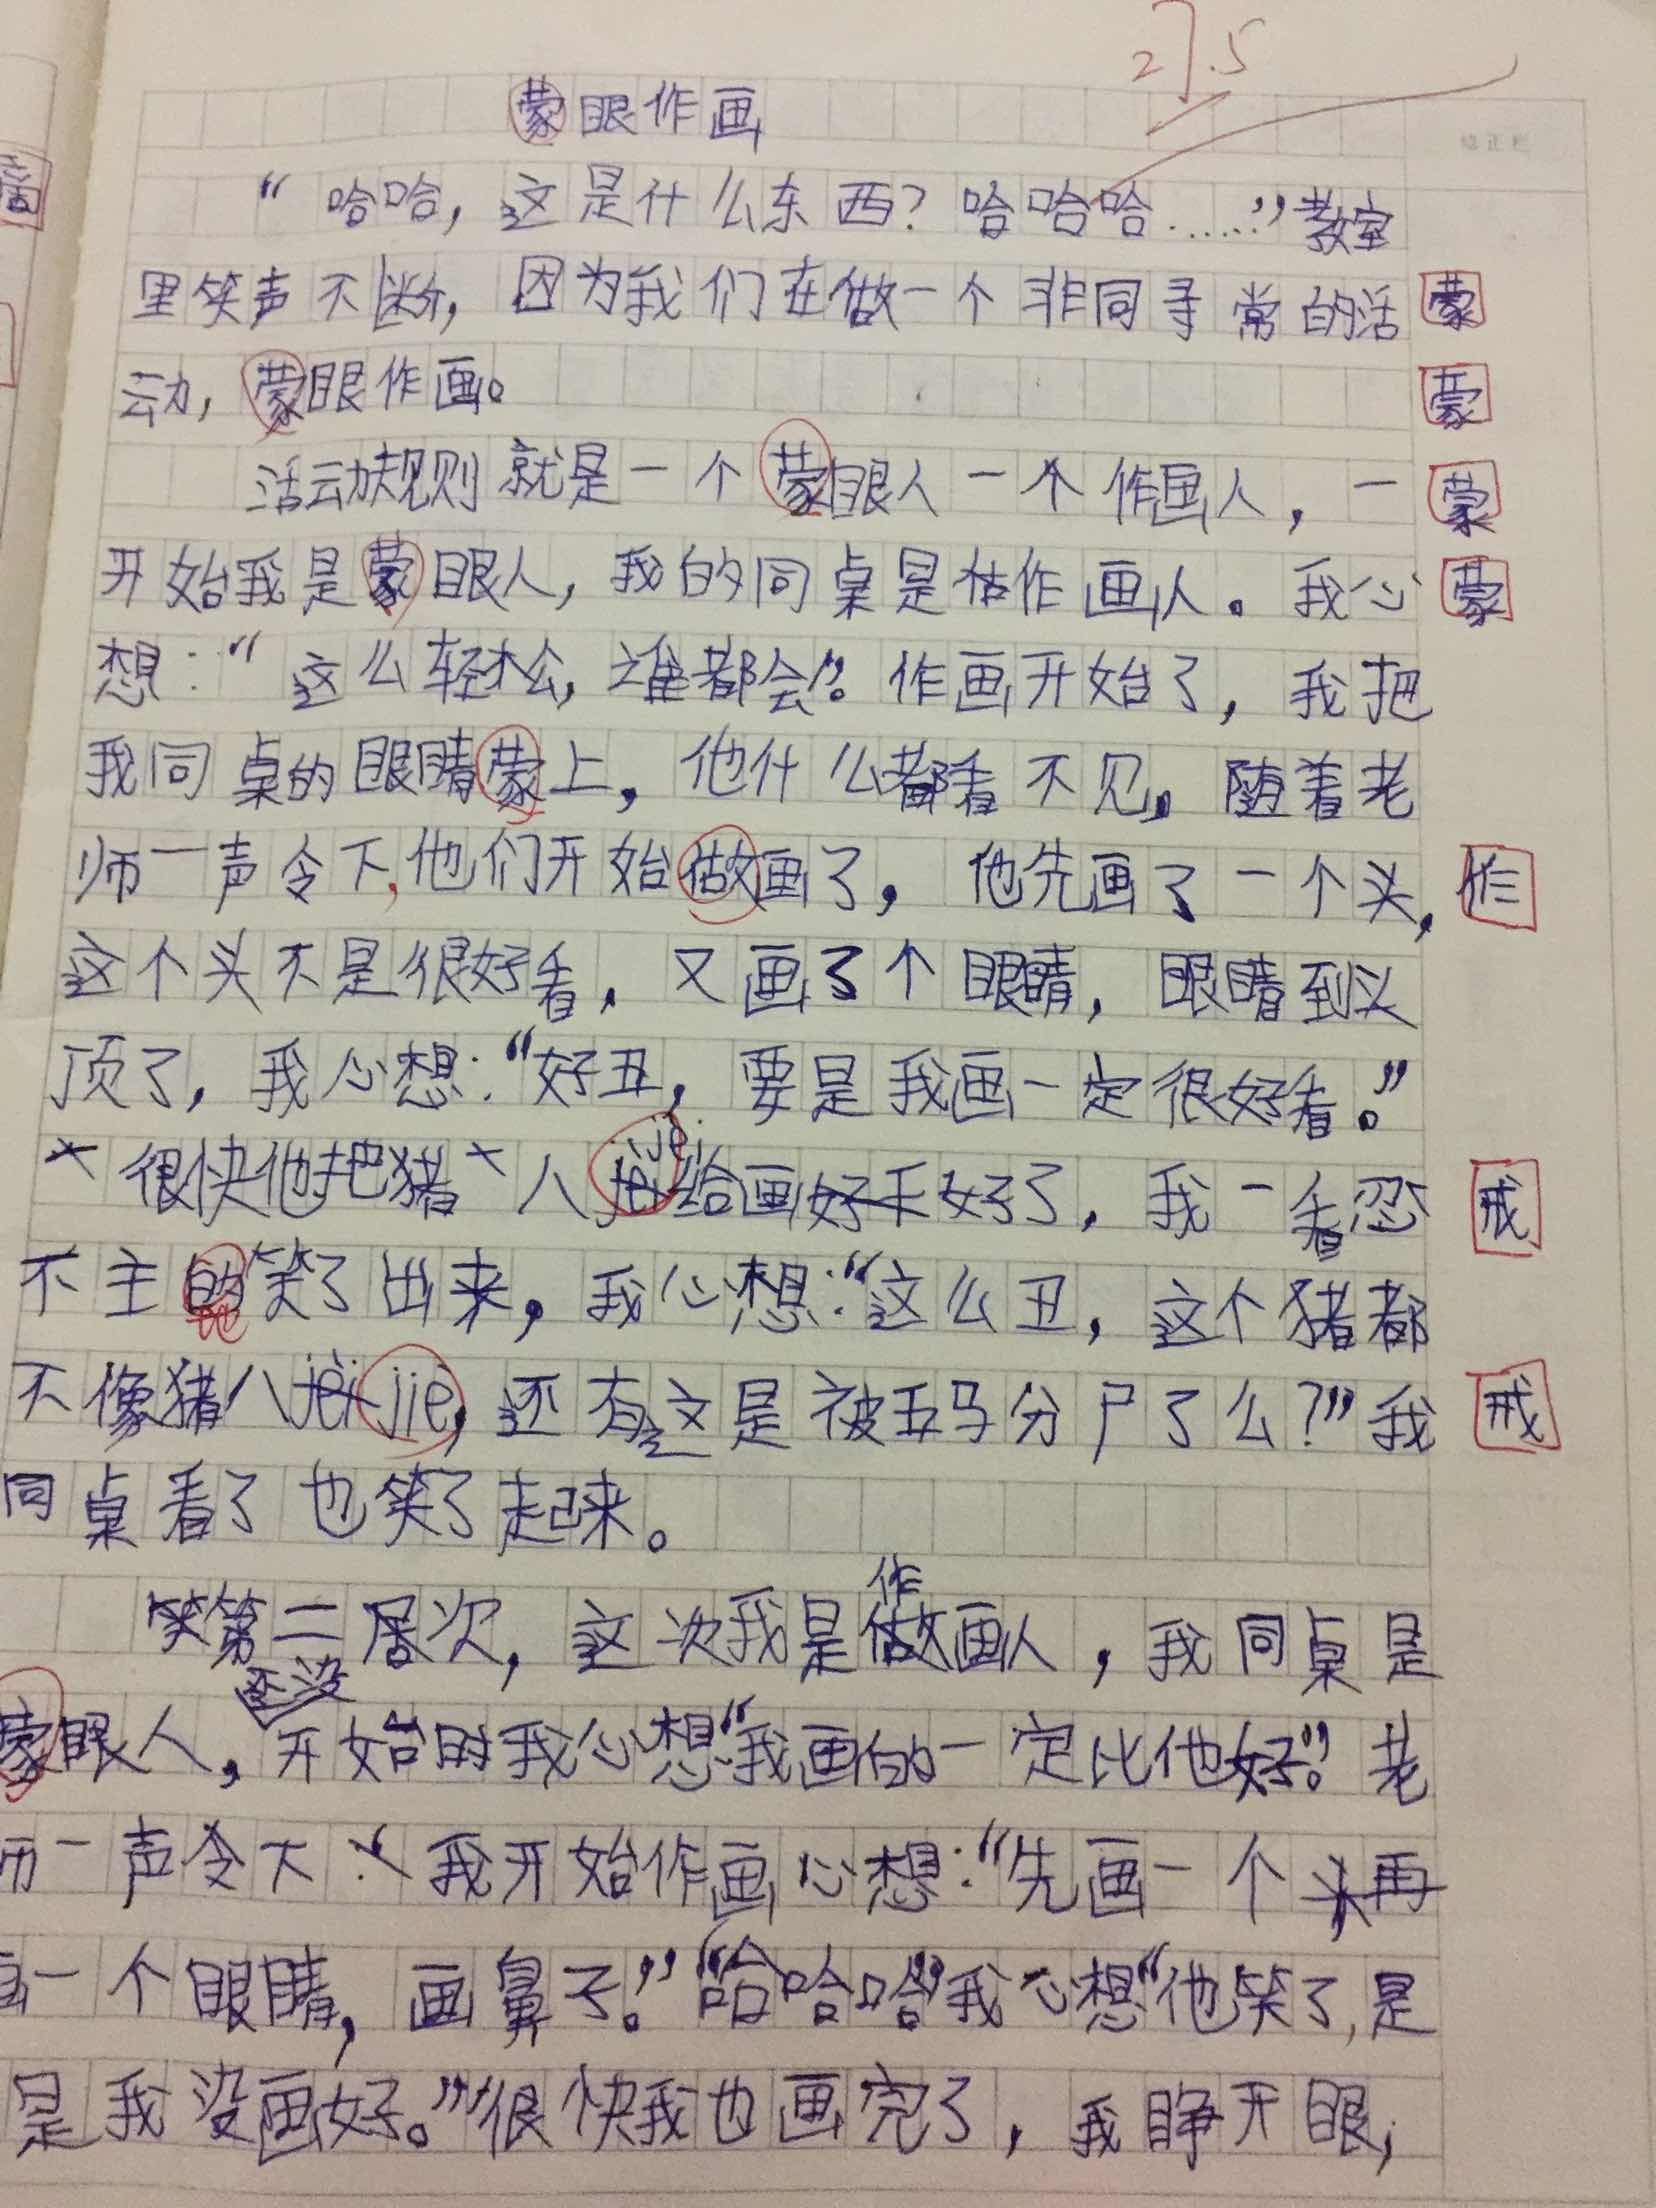 27.5
蒙眼作画
“哈哈，这是什么东西？哈哈哈……”教室
里笑声不断，因为我们在做一个非同寻常的活 蒙
动，蒙眼作画。 蒙
活动规则就是一个蒙眼人一个作画人，一 蒙
开始我是蒙眼人，我的同桌是作画人。我心 蒙
想：“这么轻松，谁都会”。作画开始了，我把
我同桌的眼睛蒙上，他什么都看不见。随着老
师一声令下，他们开始做画了，他先画了一个头， 作
这个头不是很好看，又画了个眼睛，眼睛到头
顶了，我心想：“好丑，要是我画一定很好看。”
很快他把猪八jiè给画好了，我一看忍 戒
不主的笑了出来，我心想：“这么丑，这个猪都
不像猪八jiè，还有这是被五马分尸了么？”我 戒
同桌看了也笑了起来。
第二居次，这次我是作画人，我同桌是
蒙眼人，还没开始时我心想“我画的一定比他好”。老
师一声令下我开始作画心想：“先画一个头再
画一个眼睛，画鼻子。”“哈哈哈”我心想“他笑了，是
是我没画好。”很快我也画完了，我睁开眼，